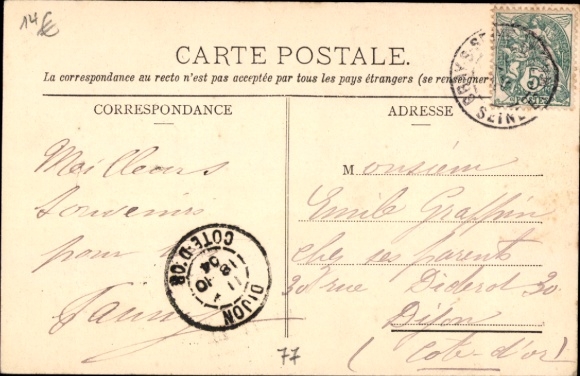 14€
CARTE POSTALE.
La correspondance au recto n'est pas acceptée par tous les pays étrangers (se renseigner
CORRESPONDANCE
ADRESSE
Meilleurs
souvenirs
pour
Monsieur
Emile
chez ses parents
30 rue Diderot 30
Dijon
(Côte-d'or)
DIJON
COTE-D'OR
BRAY-S-SEINE
SEINE
5c
77